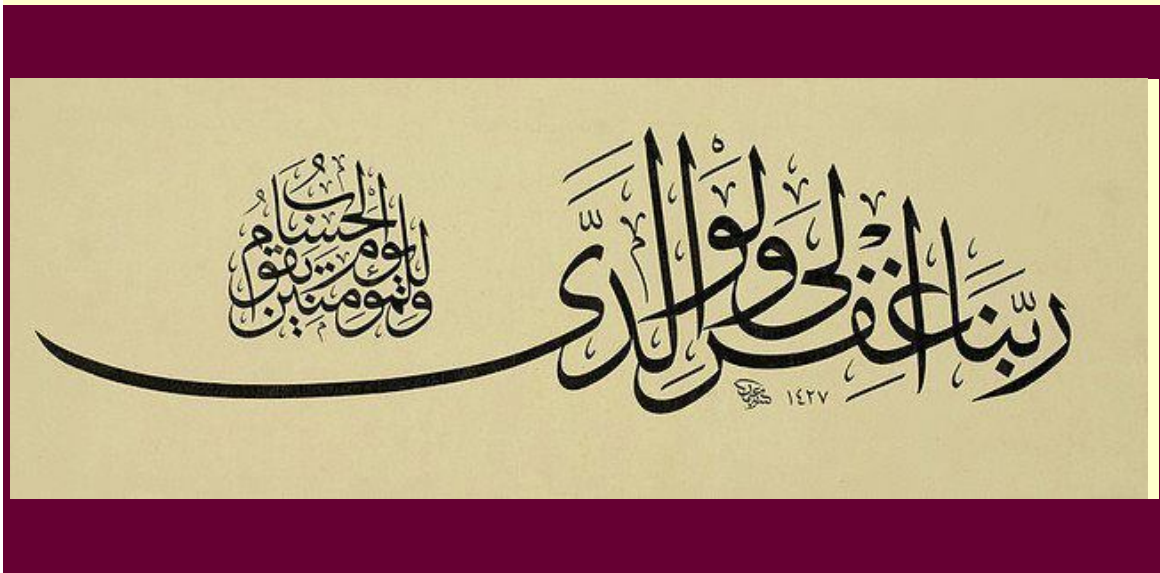 ربنا اغفر لي ولوالدي
وللمؤمنين يوم يقوم الحساب
١٤٢٧